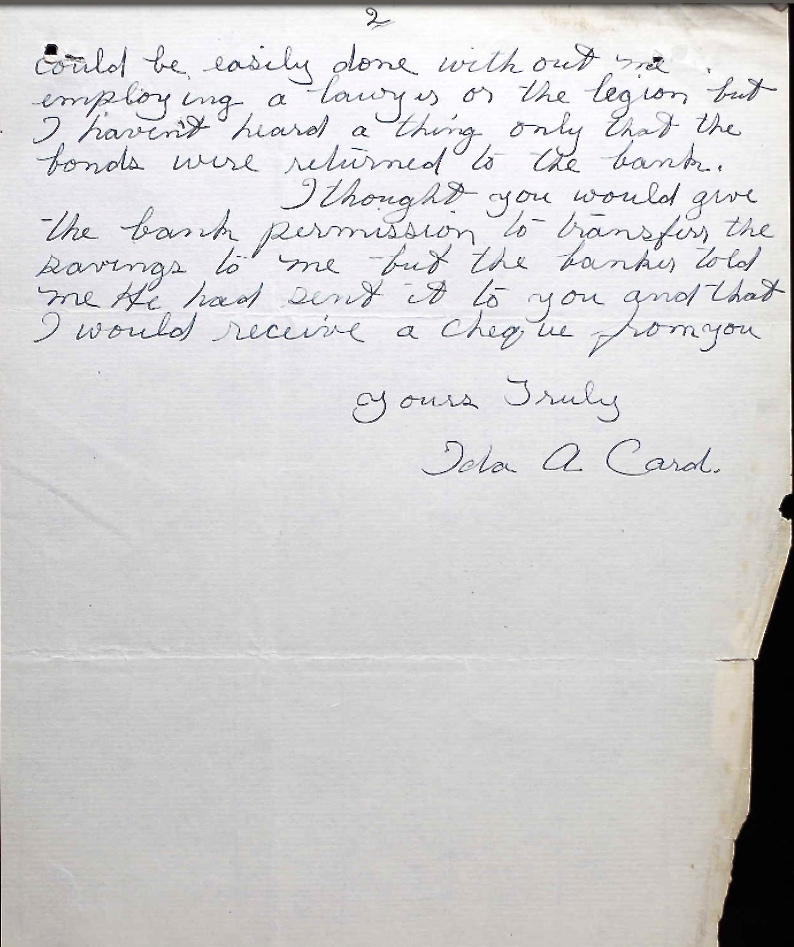 2
could be easily done without me
employing a lawyer or the legion but
I haven't heard a thing only that the
bonds were returned to the bank.
I thought you would give
the bank permission to transfer the
savings to me but the banker told
me He had sent it to you and that
I would receive a cheque from you
Yours Truly
Ida A Card.